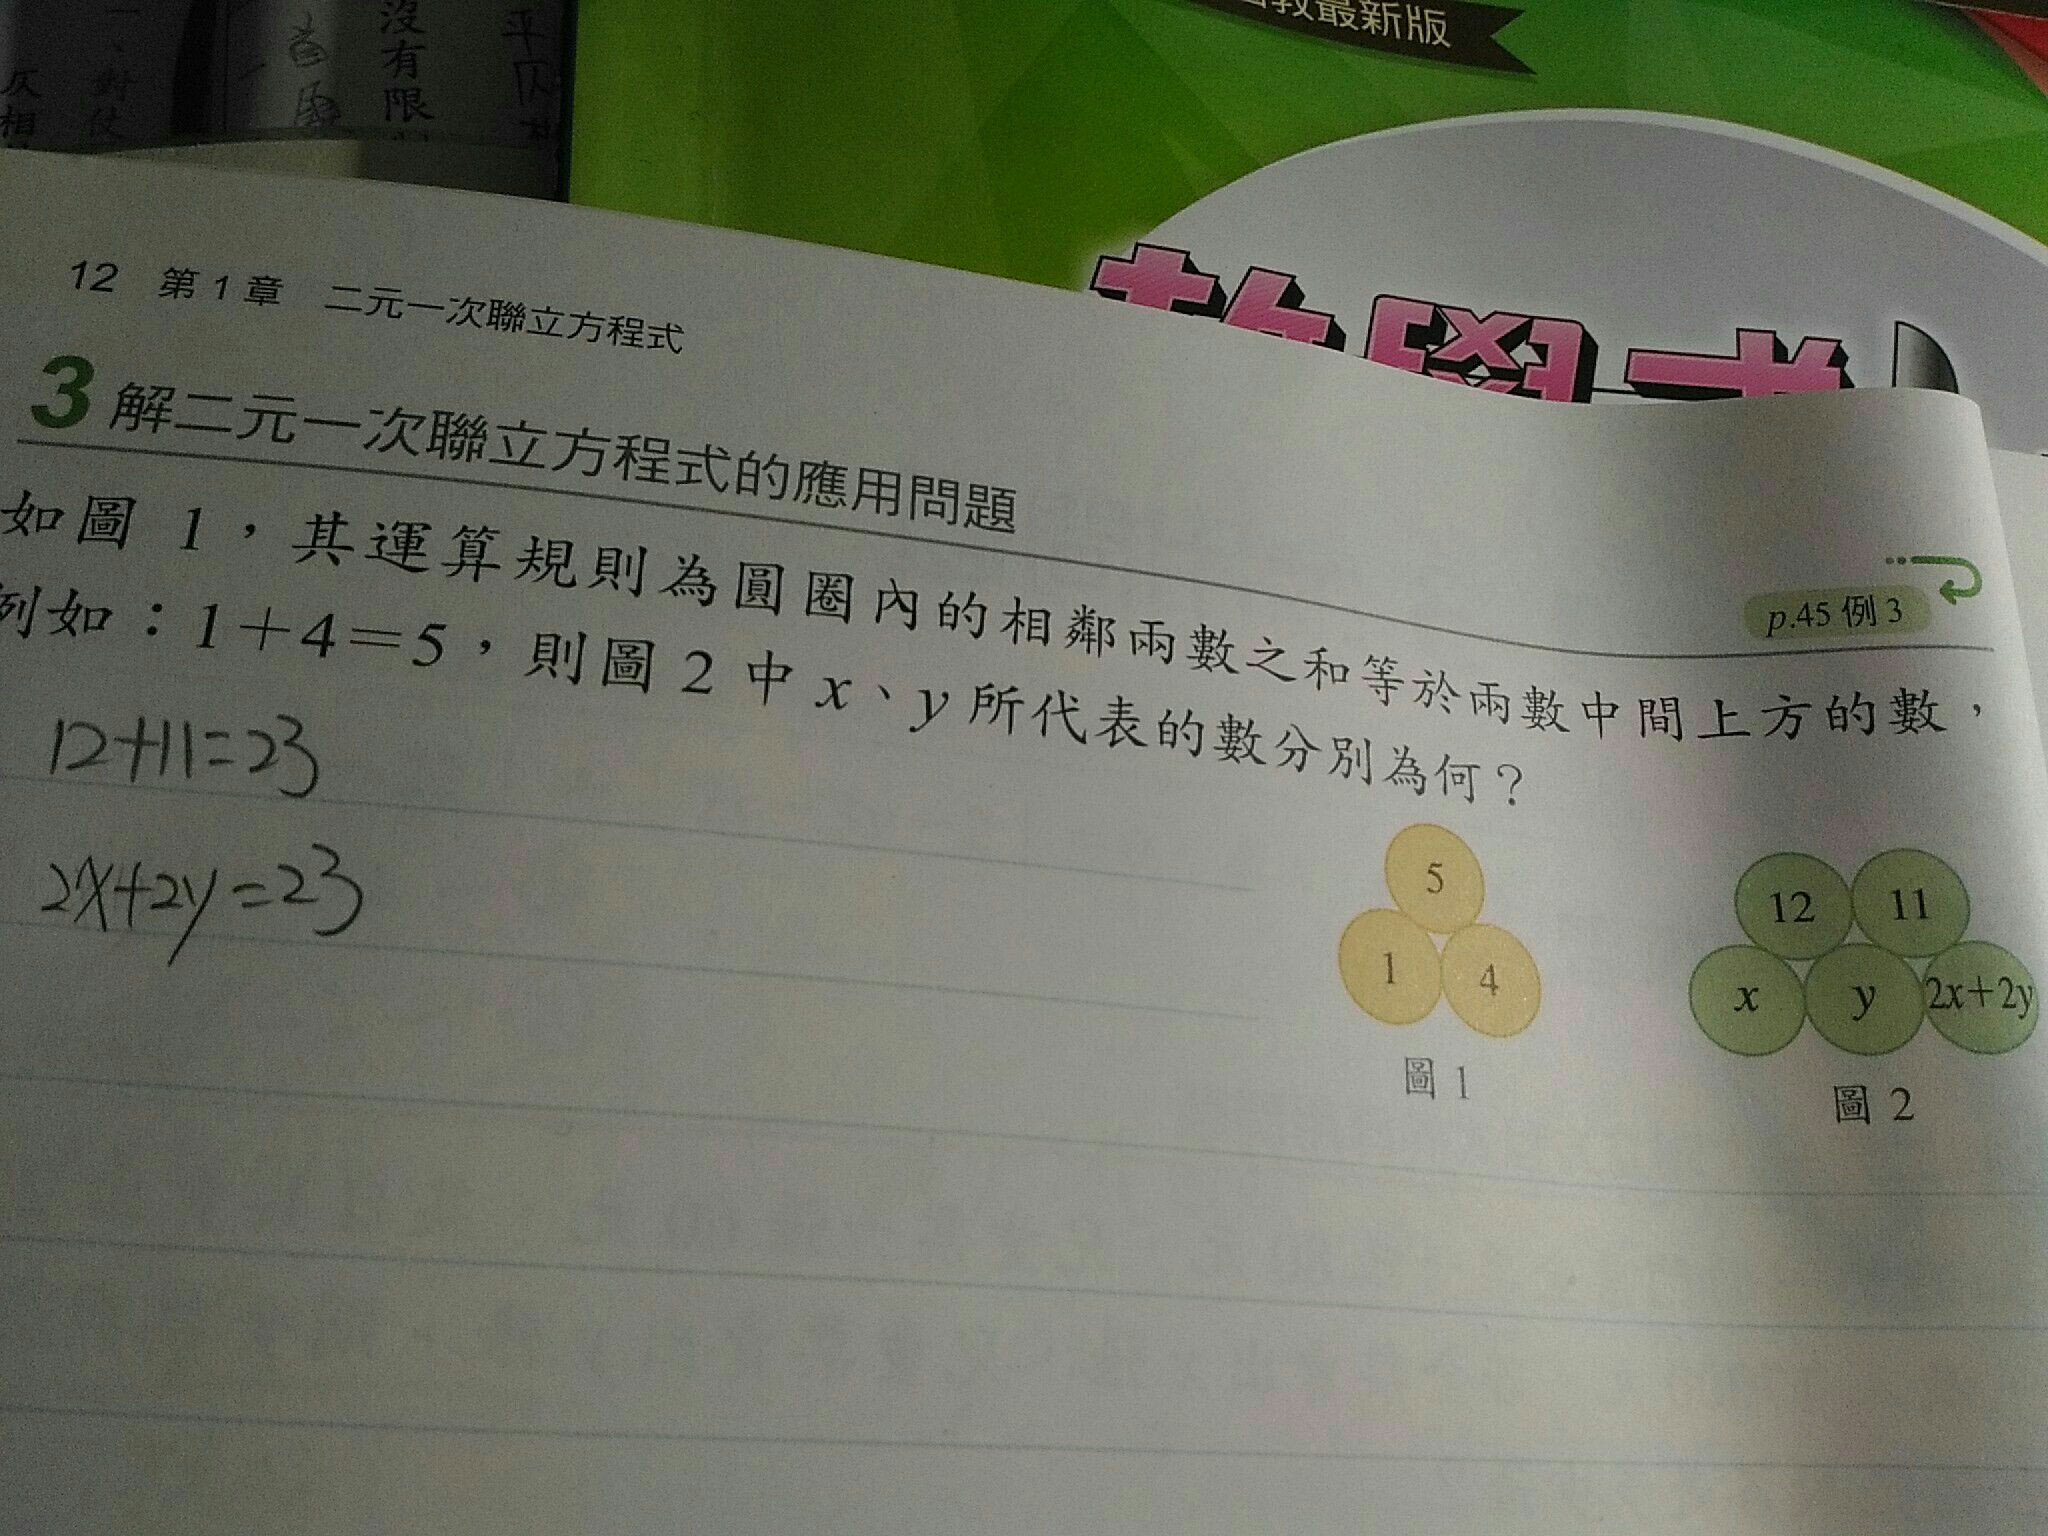 教最新版
沒有限
12 第1章 二元一次聯立方程式
3 解二元一次聯立方程式的應用問題
p.45 例 3
如圖 1，其運算規則為圓圈內的相鄰兩數之和等於兩數中間上方的數，
例如：1＋4＝5，則圖 2 中 x、y 所代表的數分別為何？
12+11=23
2x+2y=23
5
1 4
圖 1
12 11
x y 2x＋2y
圖 2